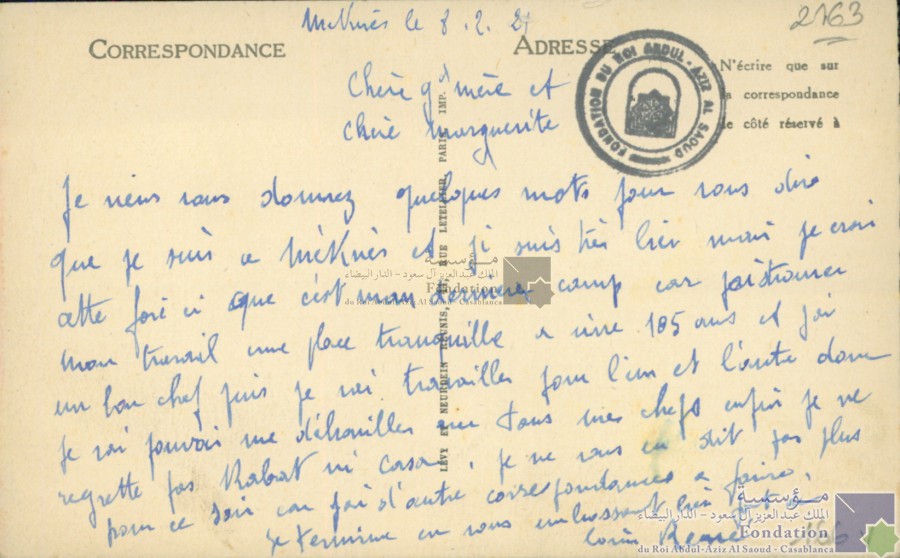 Meknès le 8.2.27
2163
CORRESPONDANCE
ADRESSE
N'écrire que sur
la correspondance
le côté réservé à
FONDATION DU ROI ABDUL-AZIZ AL SAOUD
Chère gd mère et
chère marguerite
Je viens vous donnez quelques mots pour vous dire
que je suis a Mèknès et ji suis très bien mais je crois
cette fois ci que c'est mon dernier camp car jai trouver
mon travail une place tranquille a vivre 105 ans et j'ai
un bon chef puis je vai travailler pour l'un et l'autre donc
Je vai pouvoir me débouiller avec tous mes chefs enfin je ne
regrette pas Rabat ni casa, je ne vous en dit pas plus
pour ce soir car j'ai d'autre correspondances a faire,
Je termine en vous embrassant bien
René
LÉVY ET NEURDEIN RÉUNIS, 44, RUE LETELLIER, PARIS, IMP.
مؤسسة
الملك عبد العزيز آل سعود - الدار البيضاء
Fondation
du Roi Abdul-Aziz Al Saoud - Casablanca
مؤسسة
الملك عبد العزيز آل سعود - الدار البيضاء
Fondation
du Roi Abdul-Aziz Al Saoud - Casablanca